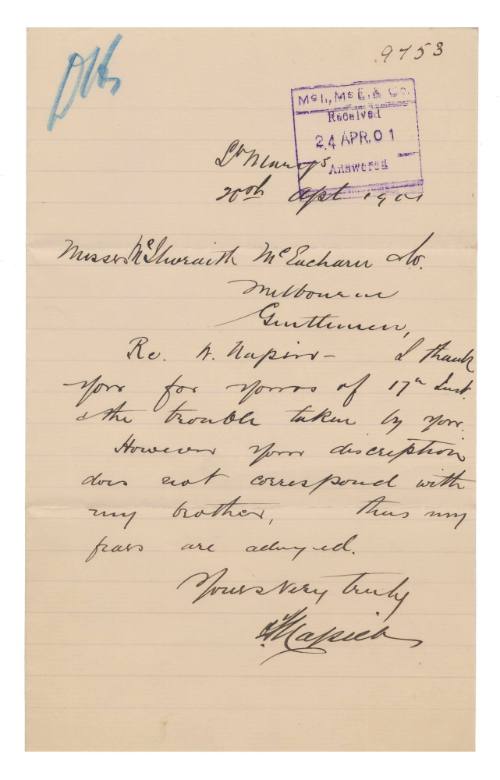 9753
McI., McE. & Co.
Received
24 APR. 01
Answered
St Marys
20th Apl 1901
Messrs McIlwraith McEacharn & Co.
Melbourne
Gentlemen,
Re. W. Napier - I thank
you for yours of 17th Inst.
& the trouble taken by you.
However your discription
does not corrspond with
my brother, thus my
fears are
Yours very truly
Napier